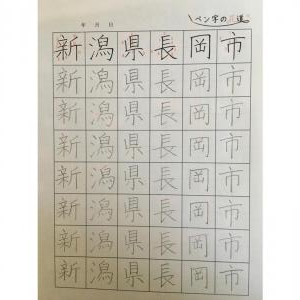 年 月 日
ペン字の 道
新潟県長岡市
新潟県長岡市
新潟県長岡市
新潟県長岡市
新潟県長岡市
新潟県長岡市
新潟県長岡市
新潟県長岡市